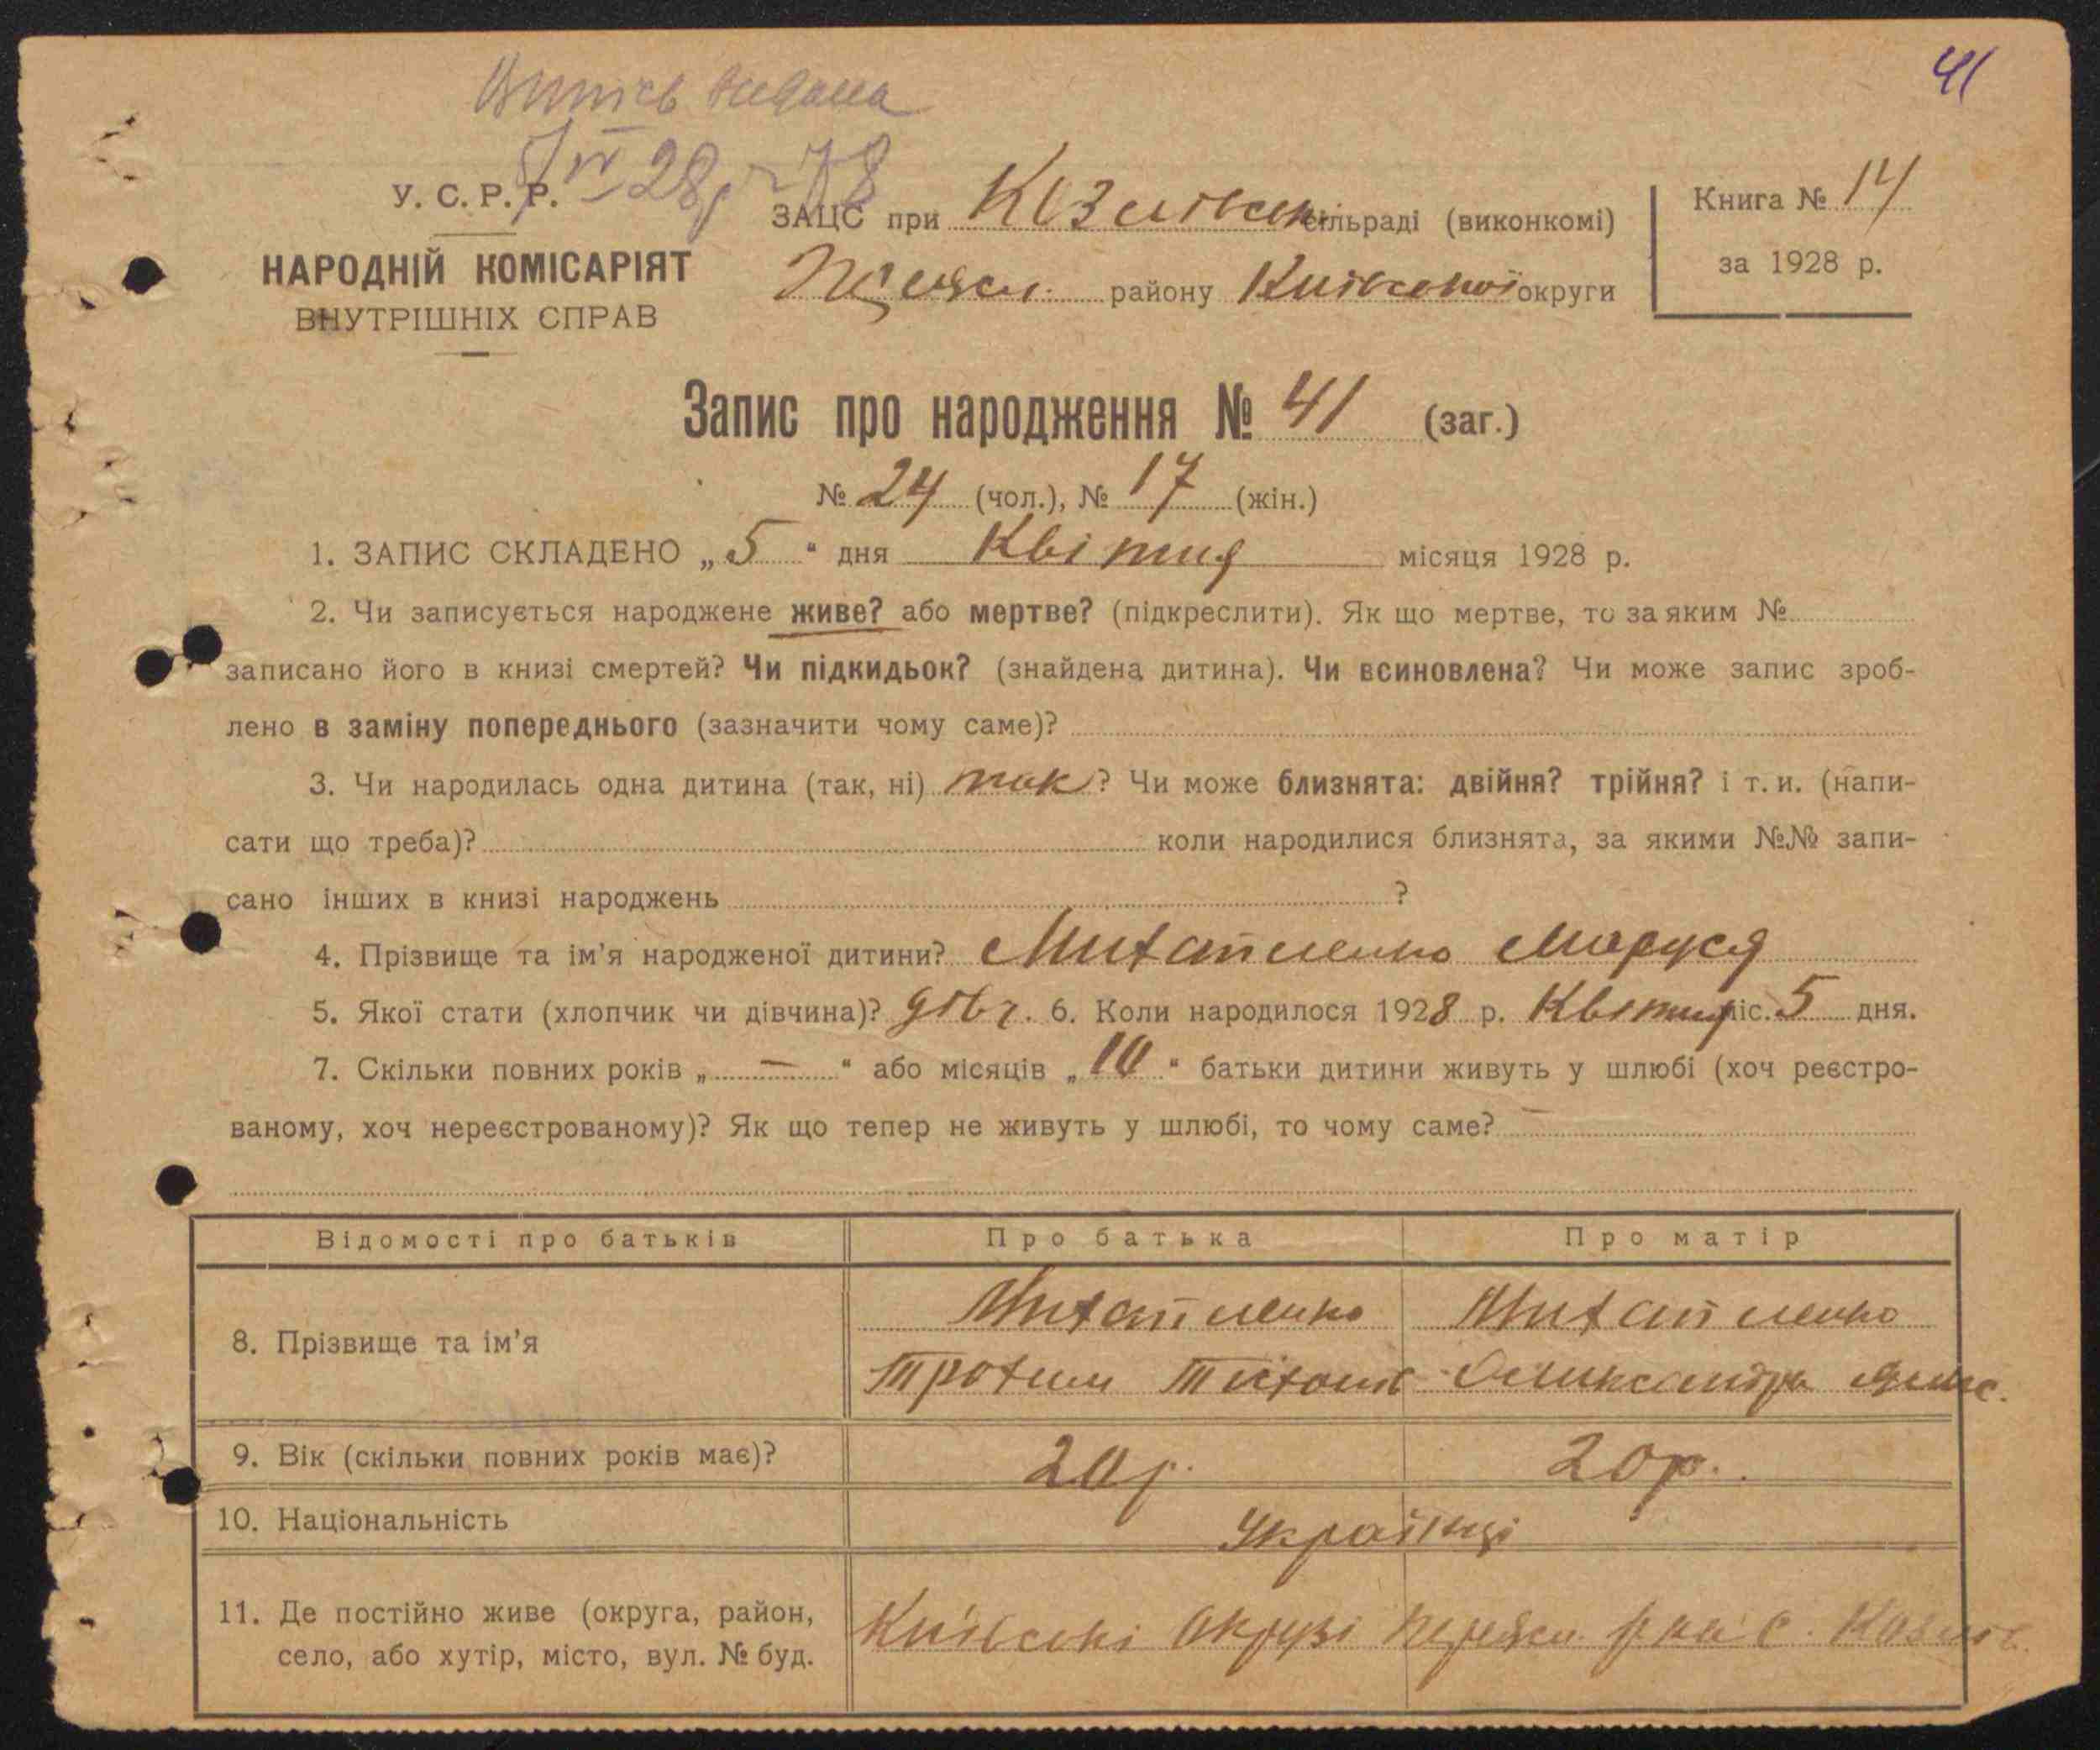 41
Випись видана
У. С. Р. Р.
НАРОДНІЙ КОМІСАРІЯТ
ВНУТРІШНІХ СПРАВ
ЗАЦС при Козлівськ сільраді (виконкомі)
району Київської округи
Книга № 14
за 1928 р.
Запис про народження № 41 (заг.)
№ 24 (чол.), № 17 (жін.)
1. ЗАПИС СКЛАДЕНО „ 5 “ дня Квітня місяця 1928 р.
2. Чи записується народжене живе? або мертве? (підкреслити). Як що мертве, то за яким №
записано його в книзі смертей? Чи підкидьок? (знайдена дитина). Чи всиновлена? Чи може запис зроб-
лено в заміну попереднього (зазначити чому саме)?
3. Чи народилась одна дитина (так, ні) так ? Чи може близнята: двійня? трійня? і т. и. (напи-
сати що треба)? коли народилися близнята, за якими №№ запи-
сано інших в книзі народжень ?
4. Прізвище та ім’я народженої дитини? Михайленко Маруся
5. Якої стати (хлопчик чи дівчина)? дівч. 6. Коли народилося 1928 р. Квітня міс. 5 дня.
7. Скільки повних років „ — “ або місяців „ 10 “ батьки дитини живуть у шлюбі (хоч реєстро-
ваному, хоч нереєстрованому)? Як що тепер не живуть у шлюбі, то чому саме? —
Відомості про батьків Про батька Про матір
8. Прізвище та ім’я Михайленко Михайленко
Трохим Тихонів Олександра
9. Вік (скільки повних років має)? 20 р. 20 р.
10. Національність Українці
11. Де постійно живе (округа, район,
село, або хутір, місто, вул. № буд.
Київські окрузі Переясл. с. Козлів.